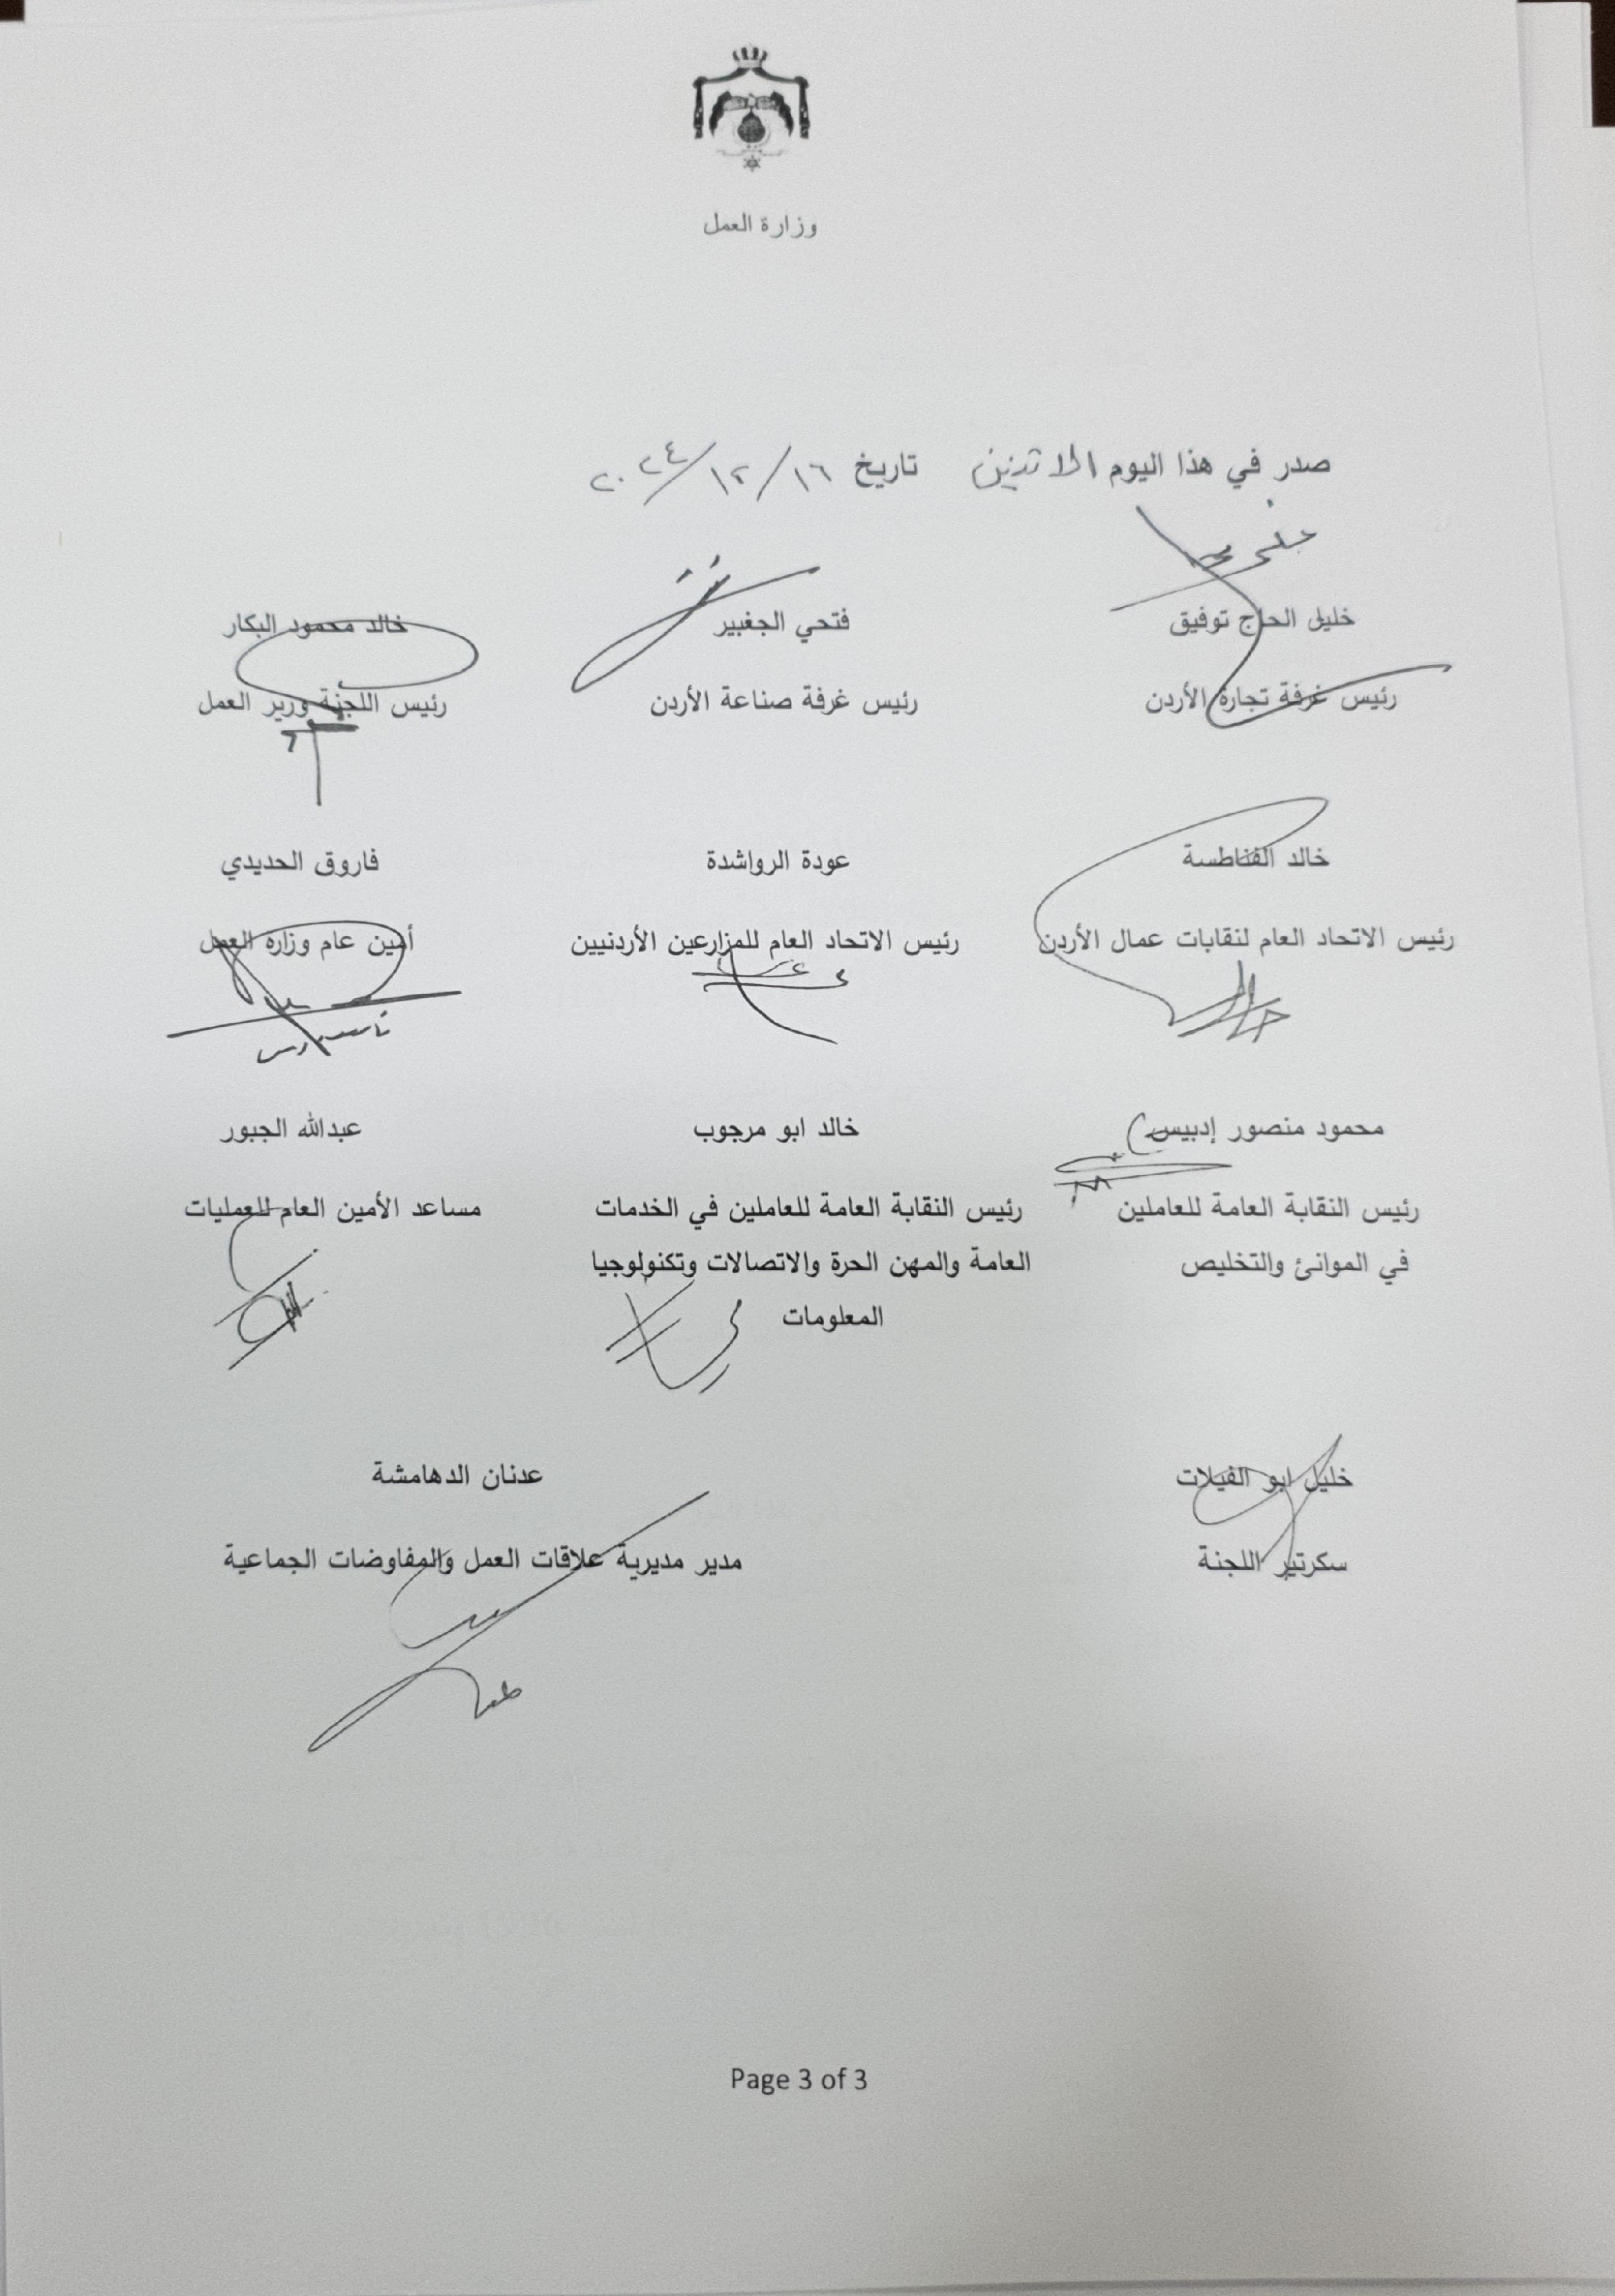 وزارة العمل
صدر في هذا اليوم الاثنين تاريخ ١٦/١٢/٢٠٢٤
خليل الحاج توفيق
رئيس غرفة تجارة الأردن
فتحي الجغبير
رئيس غرفة صناعة الأردن
خالد محمود البكار
رئيس اللجنة وزير العمل
خالد الفناطسة
رئيس الاتحاد العام لنقابات عمال الأردن
عودة الرواشدة
رئيس الاتحاد العام للمزارعين الأردنيين
فاروق الحديدي
أمين عام وزارة العمل
محمود منصور إدبيس
رئيس النقابة العامة للعاملين
في الموانئ والتخليص
خالد ابو مرجوب
رئيس النقابة العامة للعاملين في الخدمات
العامة والمهن الحرة والاتصالات وتكنولوجيا
المعلومات
عبدالله الجبور
مساعد الأمين العام للعمليات
خليل ابو الفيلات
سكرتير اللجنة
عدنان الدهامشة
مدير مديرية علاقات العمل والمفاوضات الجماعية
Page 3 of 3